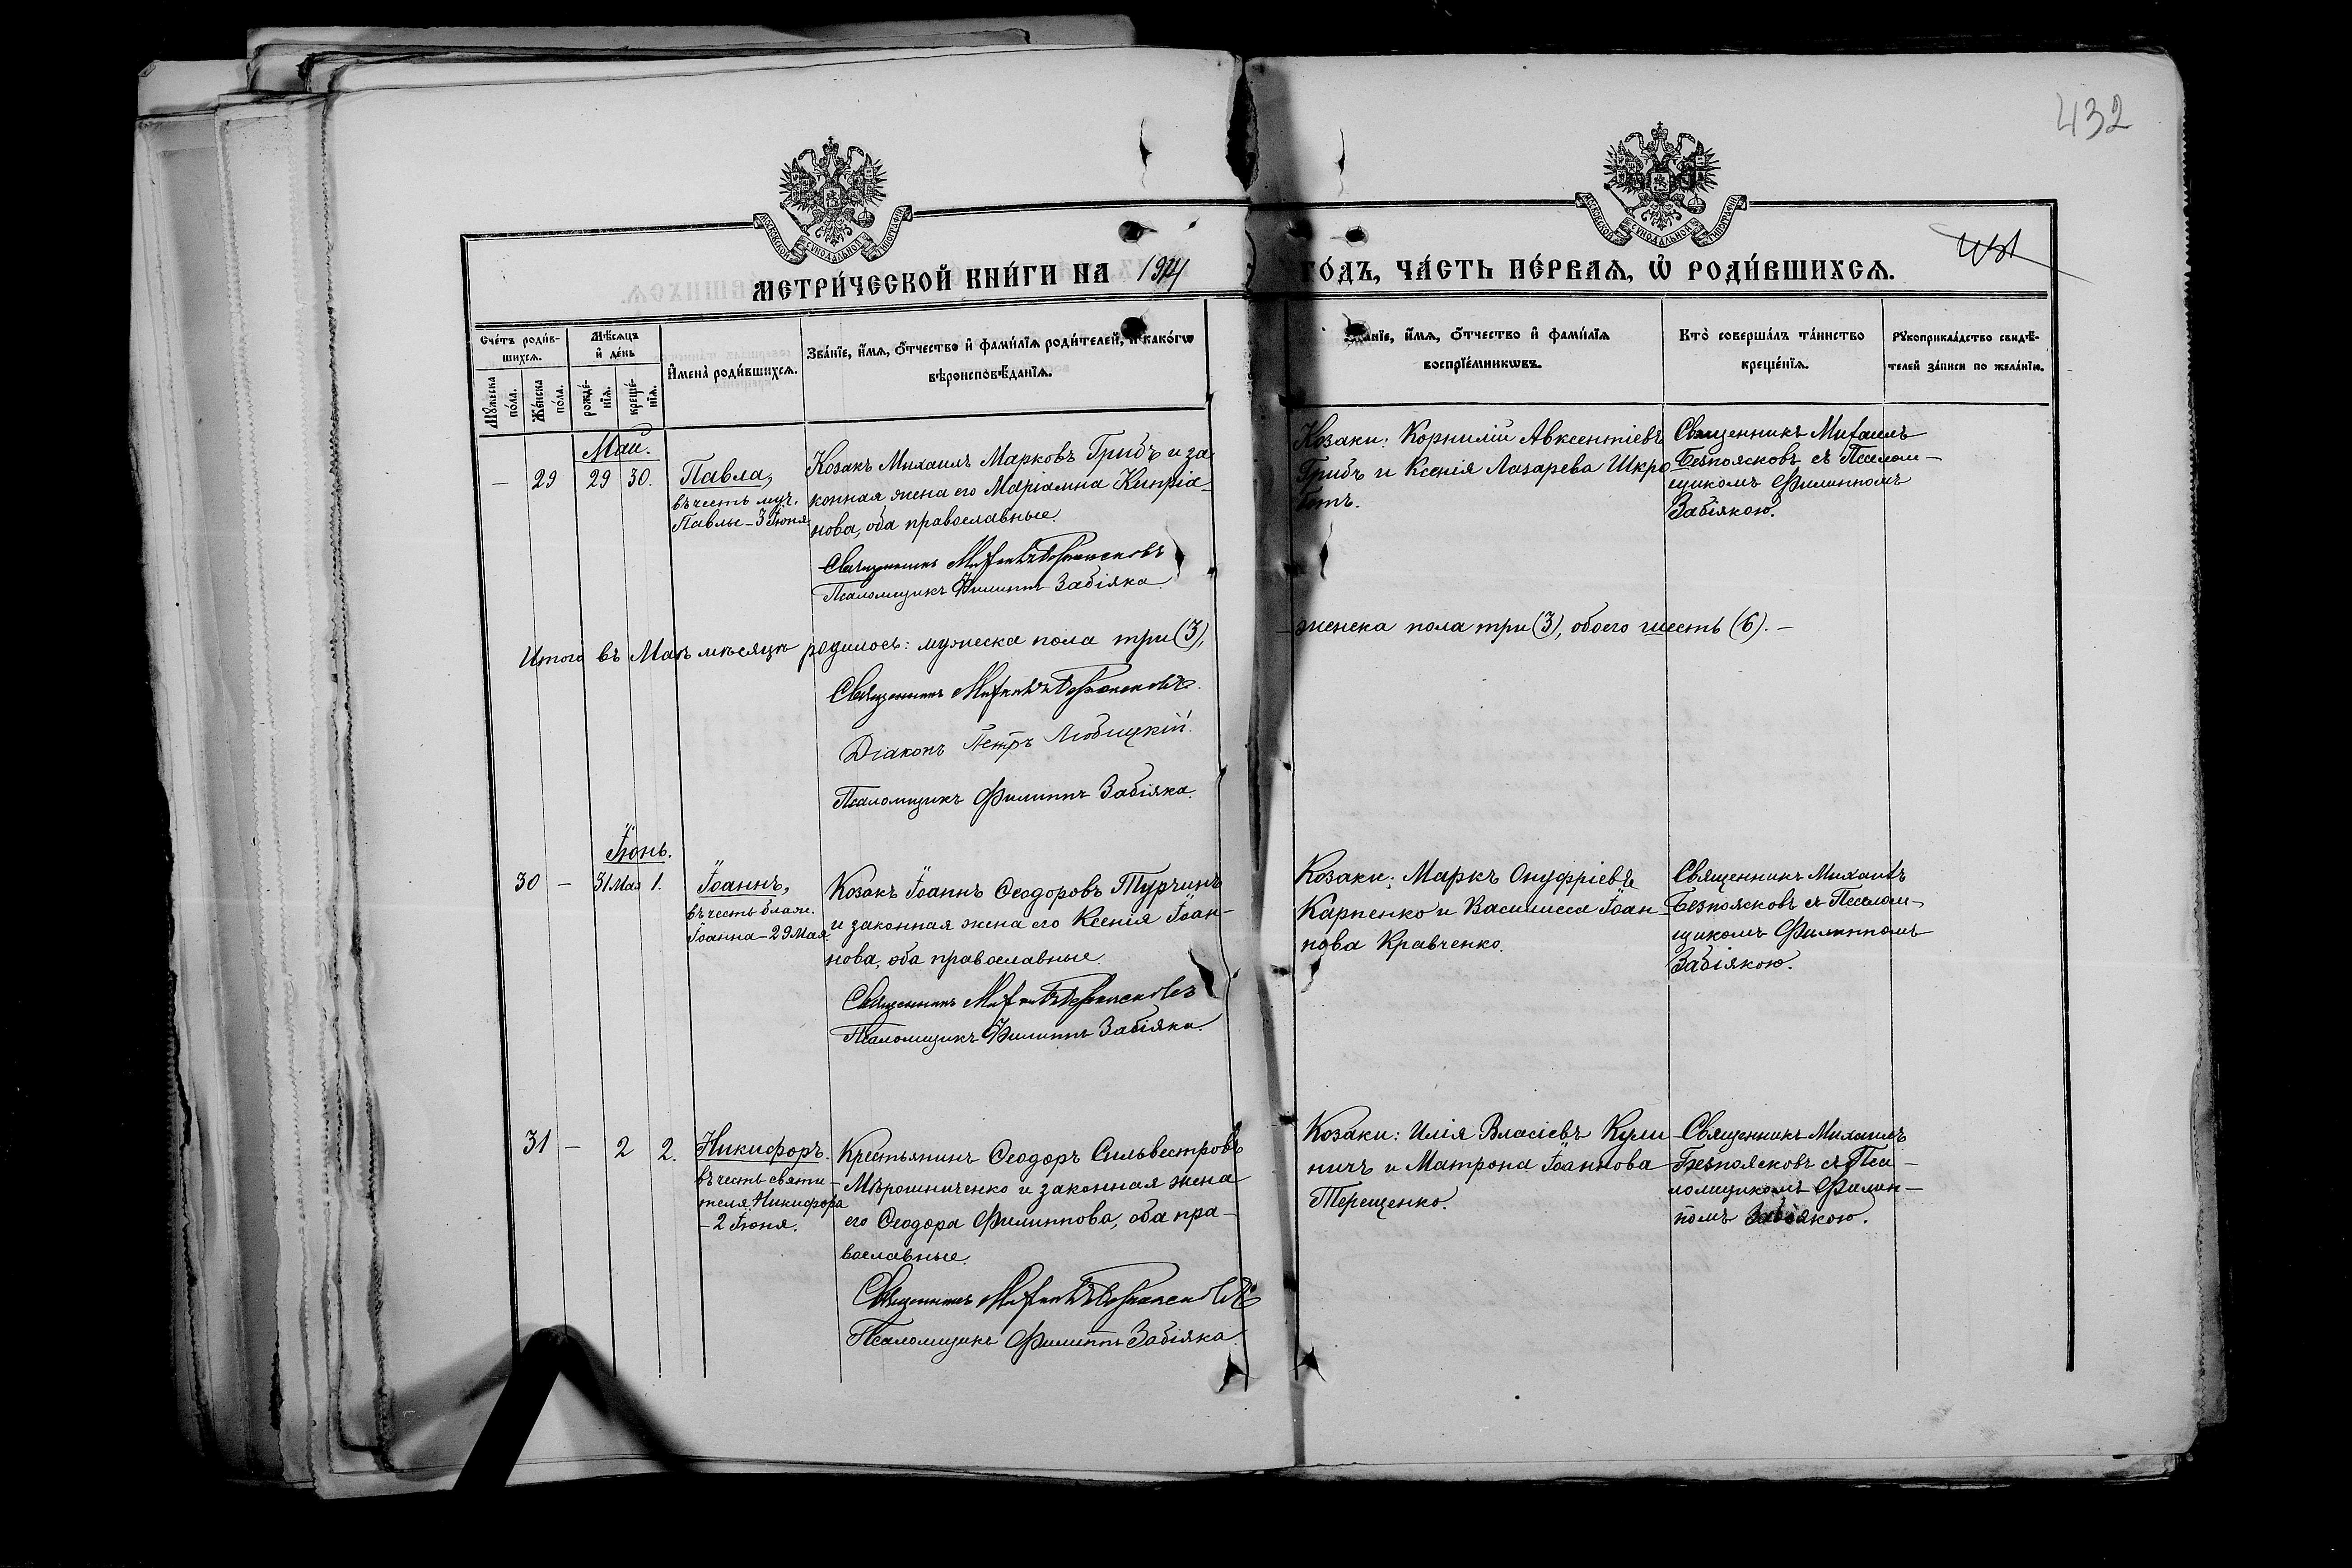 432
МОСКОВСКОЙ СѴНОДАЛЬНОЙ ТИПОГРАФІИ
МОСКОВСКОЙ СѴНОДАЛЬНОЙ ТИПОГРАФІИ
МЕТРИ́ЧЕСКОЙ КНИ́ГИ НА 1914 ГО́ДЪ, ЧА́СТЬ ПЕ́РВАѦ, Ѿ РОДИ́ВШИХСѦ.
Сче́тъ роди́в-
шихсѧ.
Мꙋ́жеска
по́ла.
Же́нска
по́ла.
Мѣ́сѧцъ
и҆ де́нь
рожде́-
нїѧ.
креще́-
нїѧ.
И҆мена̀ роди́вшихсѧ.
Зва́нїе, и҆́мѧ, ѻ҆́тчество и҆ фами́лїѧ роди́телей, и҆ како́гѡ
вѣроисповѣ́данїѧ.
Зва́нїе, и҆́мѧ, ѻ҆́тчество и҆ фами́лїѧ
воспрїе́мникѡвъ.
Кто̀ соверша́лъ та́инство
креще́нїѧ.
Рꙋкоприкла́дство свидѣ́-
телей за́писи по жела́нїю.
Май.
— 29 29 30.
Павла,
въ честь муч.
Павлы – 3 Іюня.
Козакъ Михаилъ Марковъ Грибъ и за-
конная жена его Маріамна Кипріа-
нова, оба православные.
Священникъ Михаилъ Безпоясковъ
Псаломщикъ Филиппъ Забіяка.
Козаки: Корнилій Авксентіевъ
Грибъ и Ксенія Лазарева Шкро-
Священникъ Михаилъ
Безпоясковъ съ Псалом-
щикомъ Филиппомъ
Забіякою.
Итого въ Маѣ мѣсяцѣ родилось: мужеска пола три (3), — женска пола три (3), обоего шесть (6). —
Священникъ Михаилъ Безпоясковъ.
Діаконъ Петръ Любицкій.
Псаломщикъ Филиппъ Забіяка.
Іюнь.
30 — 31 Мая 1.
Іоаннъ,
въ честь блаж.
Іоанна – 29 Мая.
Козакъ Іоаннъ Ѳеодоровъ Турчинъ
и законная жена его Ксенія Іоан-
нова, оба православные.
Священникъ Михаилъ Безпоясковъ
Псаломщикъ Филиппъ Забіяка.
Козаки: Маркъ Онуфріевъ
Карпенко и Василисса Іоан-
нова Кравченко.
Священникъ Михаилъ
Безпоясковъ съ Псалом-
щикомъ Филиппомъ
Забіякою.
31 — 2 2.
Никифоръ.
въ честь святи-
теля Никифора
– 2 Іюня.
Крестьянинъ Ѳеодоръ Сильвестровъ
Мѣрошниченко и законная жена
его Ѳеодора Филиппова, оба пра-
вославные.
Священникъ Михаилъ Безпоясковъ
Псаломщикъ Филиппъ Забіяка.
Козаки: Илія Власіевъ Кули-
ничъ и Матрона Іоаннова
Терещенко.
Священникъ Михаилъ
Безпоясковъ съ Пса-
ломщикомъ Филип-
помъ Забіякою.